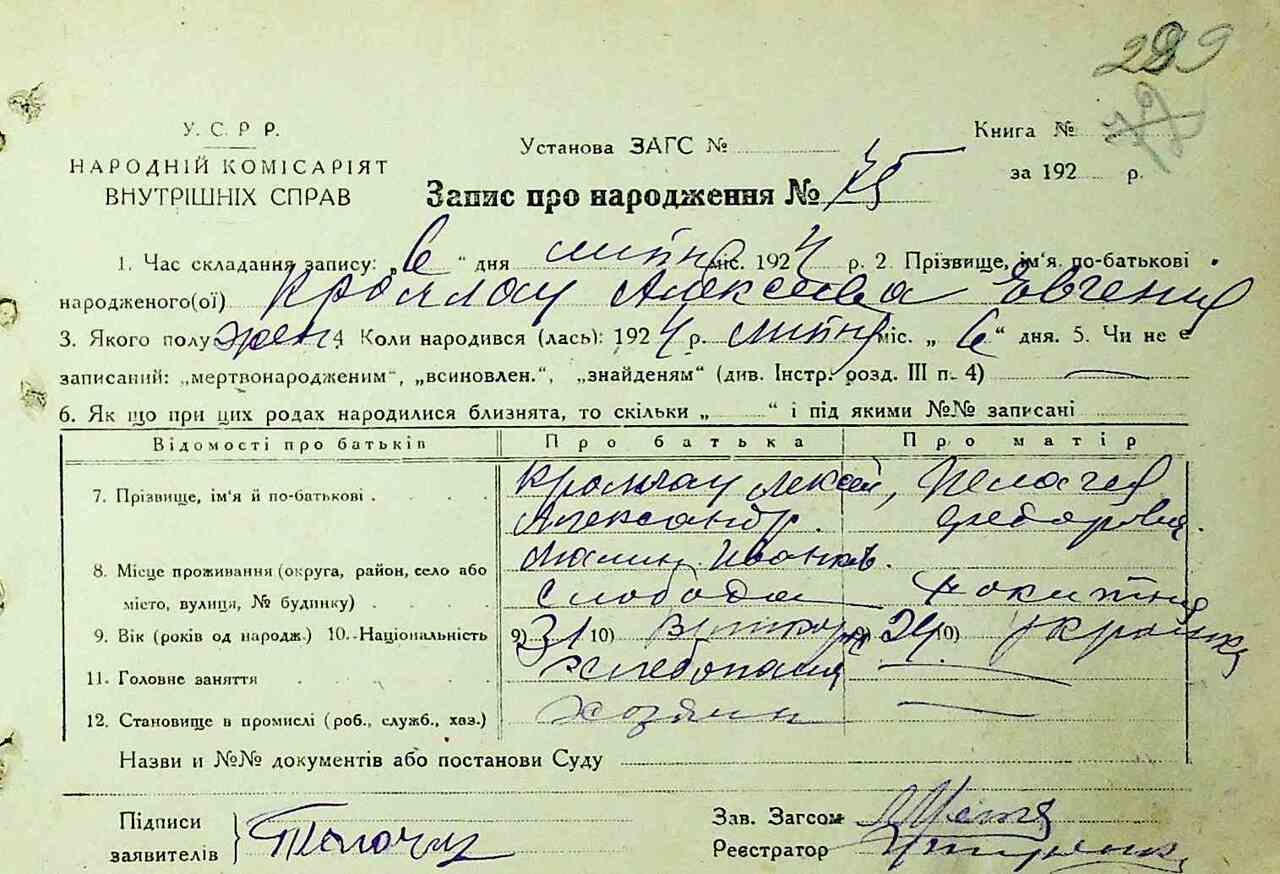 299
У. С. Р Р.
НАРОДНІЙ КОМІСАРІЯТ
ВНУТРІШНІХ СПРАВ
Установа ЗАГС №
Книга №
за 192 р.
Запис про народження № 75
1. Час складання запису: „6“ дня липня міс. 1924 р. 2. Прізвище, ім'я по-батькові
народженого(ої) Кромлау Алексеева Евгения
3. Якого полу жен 4 Коли народився (лась): 1924 р. липня міс. „6“ дня. 5. Чи не є
записаний: „мертвонародженим“, „всиновлен.“, „знайденям“ (див. Інстр. розд. III п. 4) —
6. Як що при цих родах народилися близнята, то скільки „ “ і під якими №№ записані
Відомості про батьків Про батька Про матір
7. Прізвище, ім'я й по-батькові Кромлау Алексей, Пелагея
Александр. Федоровна.
8. Місце проживання (округа, район, село або
місто, вулиця, № будинку) Слобода
9. Вік (років од народж.) 10. Національність 9) 31 10) 9) 24 10) Українка
11. Головне заняття Хлебопаш —
12. Становище в промислі (роб., служб., хаз.) хозяин —
Назви и №№ документів або постанови Суду
Підписи
заявителів
Зав. Загсом
Реєстратор